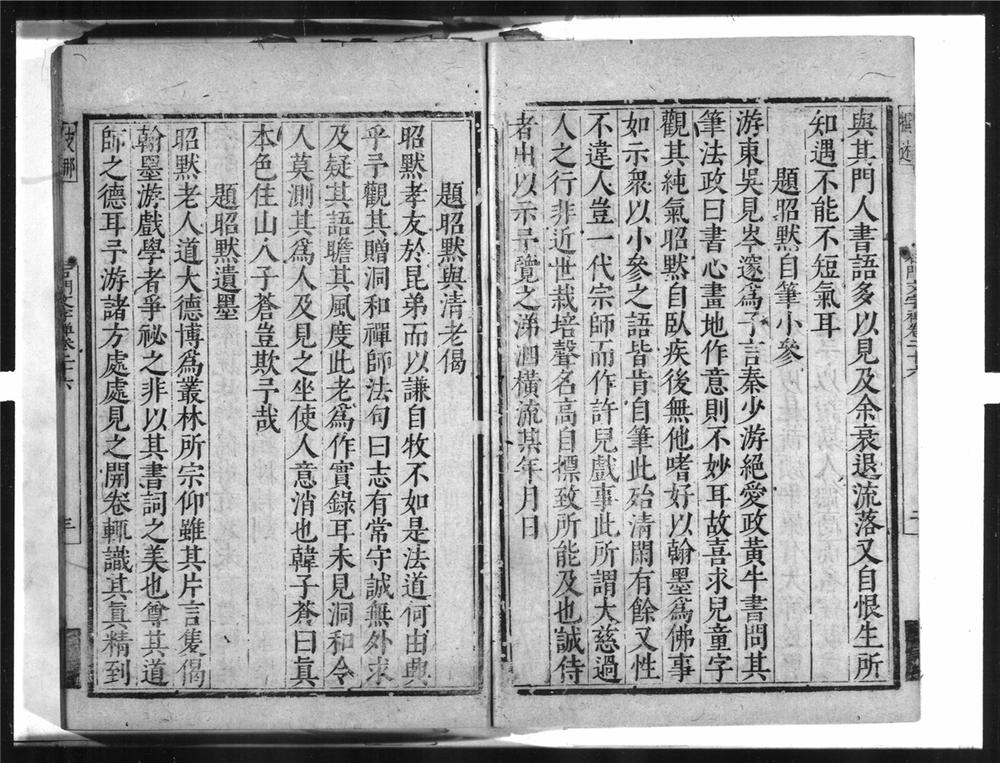 與其門人書語多以見及余衰退流落又自恨生所
知遇不能不短氣耳
題昭默自筆小參
游東吳見岑邃為予言秦少游絕愛政黃牛書問其
筆法政曰書心畫地作意則不妙耳故喜求兒童字
觀其純氣昭默自臥疾後無他嗜好以翰墨為佛事
如示衆以小參之語皆肯自筆此殆清閑有餘又性
不違人豈一代宗師而作許兒戲事此所謂大慈過
人之行非近世栽培聲名高自標致所能及也誠侍
者出以示予覽之涕泗橫流某年月日
題昭默與清老偈
昭默孝友於昆弟而以謙自牧不如是法道何由典
乎予觀其贈洞和禪師法句曰志有常守誠無外求
及疑其語瞻其風度此老為作實錄耳未見洞和令
人莫測其為人及見之坐使人意消也韓子蒼曰真
本色住山人子蒼豈欺予哉
題昭默遺墨
昭默老人道大德博為叢林所宗仰雖其片言隻偈
翰墨游戲學者爭祕之非以其書詞之美也尊其道
師之德耳予游諸方處處見之開卷輒識其真精到
石門文字禪卷二十六
三
支那